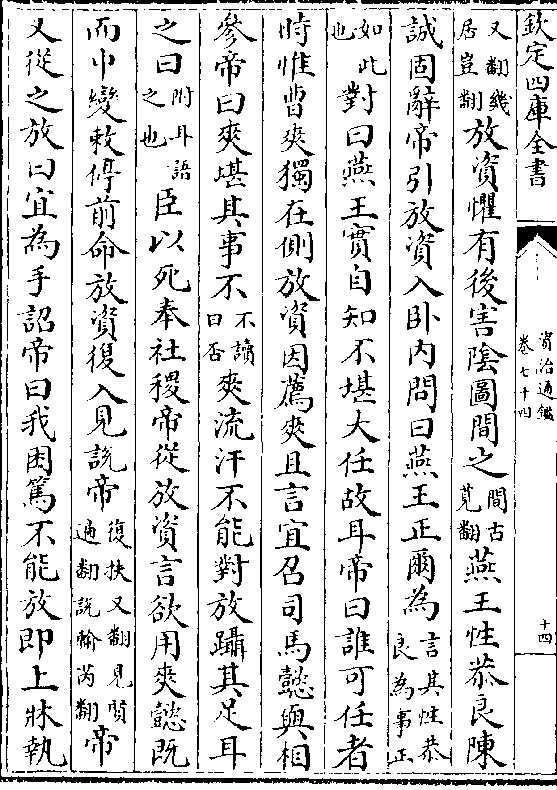 欽定四庫全書
資治通鑑
卷七十四
十四
又翻幾
居豈翻
放資懼有後害陰圖間之
間古
莧翻
燕王性恭良陳
誠固辭帝引放資入卧内問曰燕王正爾為
言其性恭
良為事正
如此
也
對曰燕王實自知不堪大任故耳帝曰誰可任者
時惟曹爽獨在側放資因薦爽且言宜召司馬懿與相
參帝曰爽堪其事不
不讀
曰否
爽流汗不能對放躡其足耳
之曰
附耳語
之也
臣以死奉社稷帝從放資言欲用爽懿既
而中變敕停前命放資復入見說帝
復扶又翻見賢
遍翻說輸芮翻
帝
又從之放曰宜為手詔帝曰我困篤不能放即上牀執